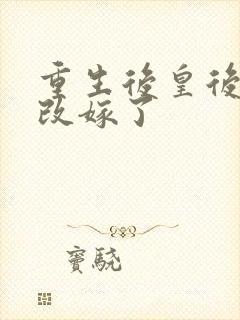 重生後皇後
改嫁了
窦驍